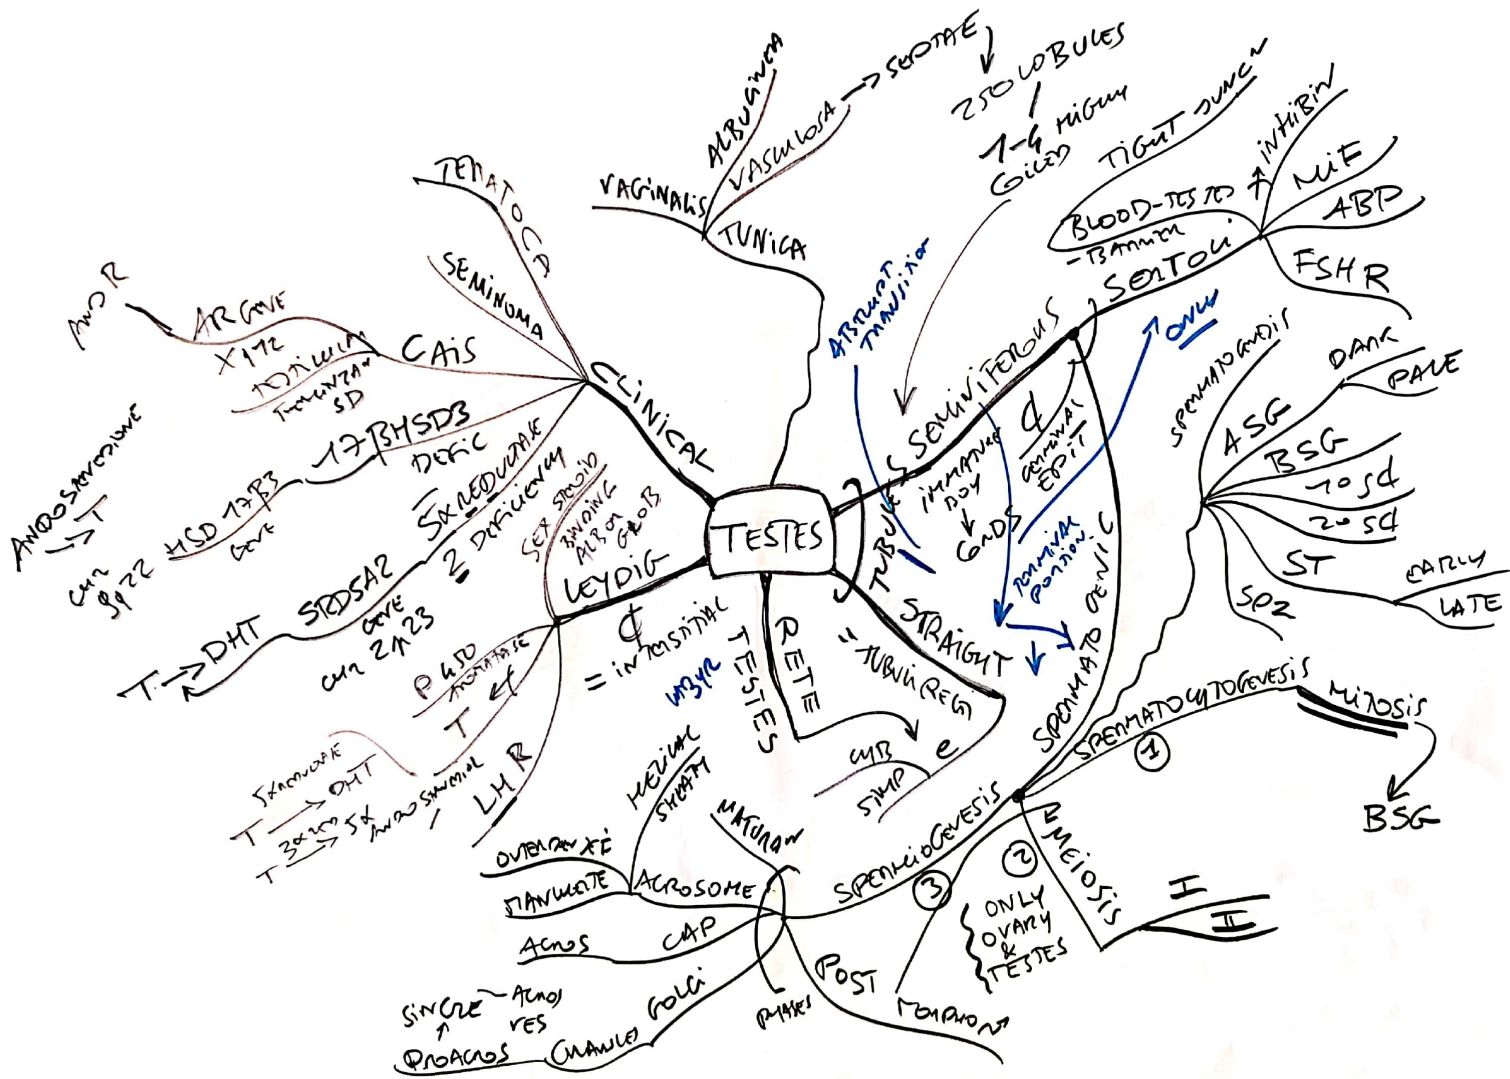 TESTES
TUNICA
VAGINALIS
ALBUGINEA
VASCULOSA → SEPTAE
250 LOBULES
1-4 HIGHLY
COILED
TUBULES
SEMINIFEROUS
ABRUPT
TRANSITION
IMMATURE
BOY
CORDS
GERMINAL
EPIT
TERMINAL
PORTION
ONLY
SERTOLI
BLOOD-TESTES
-BARRIER
TIGHT JUNC~
INHIBIN
MIF
ABP
FSH R
SPERMATOGENIC
SPERMATOGENESIS
ASG
DARK
PALE
BSG
1o S¢
2o S¢
ST
EARLY
LATE
SPZ
SPERMATOCYTOGENESIS
1
MITOSIS
BSG
MEIOSIS
2
I
II
ONLY
OVARY
&
TESTES
SPERMIOGENESIS
3
MORPHO
PHASES
POST
MATURA~
ACROSOME
HELICAL
SHEATH
MANCHETTE
CAP
ACROS
GOLGI
CHANGES
PROACROS
SINGLE
ACROS
VES
STRAIGHT
= TUBULI RECTI
e
CUB
SIMP
RETE
TESTES
LABYR
LEYDIG
¢
= INTERSTITIAL
SEX STEROID
BINDING
ALB OR
GLOB
P450
AROMATASE
T
LH R
T → DHT
T → 5α
CLINICAL
TERATO CA
SEMINOMA
CAIS
AR GENE
X q12
AND R
TESTICULAR
FEMINIZA~
SD
17-βHSD3
DEFIC
HSD 17β3
GENE
CHR
9q22
ANDROSTENEDIONE
→ T
5α REDUCTASE
2 DEFICIENCY
SRD5A2
GENE
CHR 2p23
T → DHT